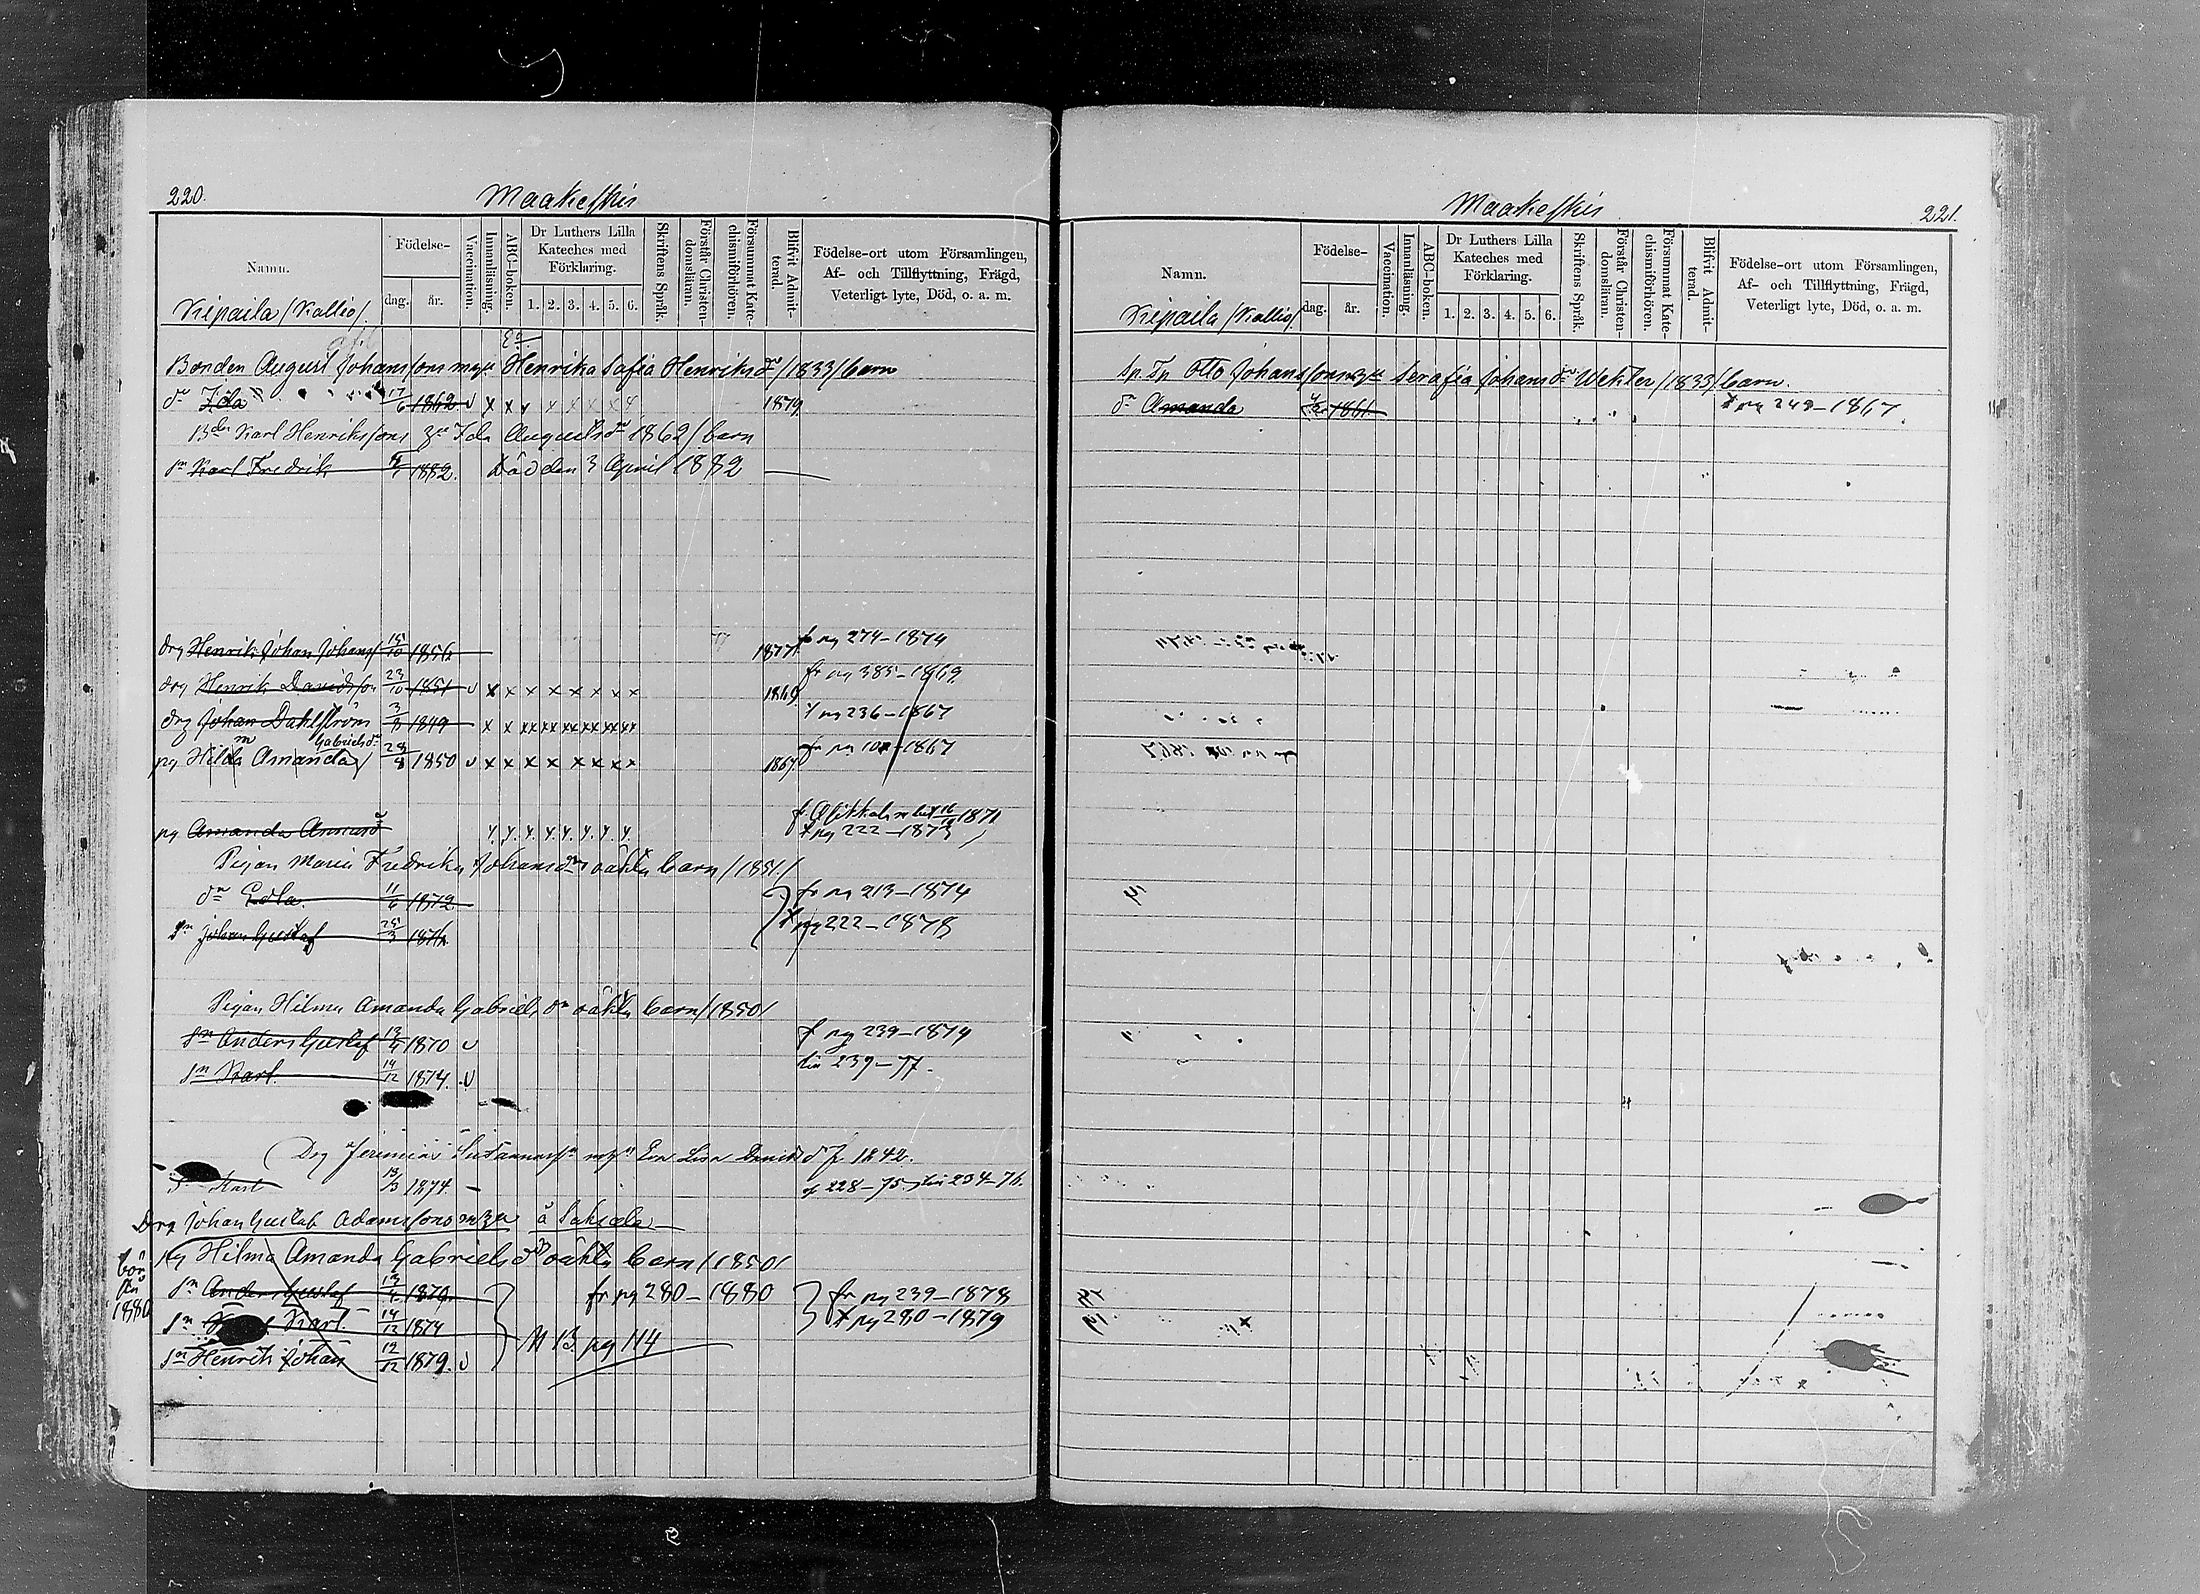 220.
Maakeskis
Namn.
Födelse-
dag.
år.
Vaccination.
Innanläsning.
ABC-boken.
Dr Luthers Lilla
Kateches med
Förklaring.
1. 2. 3. 4. 5. 6.
Skriftens Språk.
Förstår Christen-
domsläran.
Försummat Kate-
chismiförhören.
Blifvit Admit-
terad.
Födelse-ort utom Församlingen,
Af- och Tillflyttning, Frägd,
Veterligt lyte, Död, o. a. m.
Kipaila /Kallio/.
Bonden August Johanssons Henrika Sofia Henriksdr /1833/ barn
dr Ida 17/6 1862 v x x x x x x x x 1879
Karl Henrikssons Ida Augustsdr 1862/ barn
sn Karl Fredrik 1882. Död den 3 April 1882
drg Henrik Johan Johans 15/10 1856 1877 fr pg 274-1874
drg Henrik Davidsson 23/10 1851 v x x x x x x x x 1869 fr pg 385-1869
drg Johan Dahlström 3/8 1849 x x xx xx xx xx xx xx pg 236-1867
Gabrielsdr
pg Hilda Amanda 28/8 1850 v x x x x x x x x 1867 pg -1867
1871
pg Amanda x x x x x x x x pg 222-1873
Pigan Maria Fredrika Johansdrs oäkta barn /1851/
dr Edla. 11/6 1872 fr pg 213-1874
sn Johan Gustaf 25/3 1876 pg 222-1878
Pigan Hilma Amanda Gabriels dr oäkta barn /1850/
sn Anders Gustaf 13/4 1870 v pg 239-1874
sn Karl. 14/12 1874. v 239-77.
Drg Jeremias Eva Lisa Davids dr f. 1842.
sn Karl 13/3 1874 228-75 234-76.
Drg Johan Gustaf Adamssons å
pg Hilma Amanda Gabriels dr oäkta barn /1850/
sn Anders Gustaf 13/4 1870 fr pg 280-1880 fr pg 239-1878
1880
sn Karl 14/12 1874 pg 280-1879
N 13 pg 114
sn Henrik Johan 12/12 1879. v
Maakeskis
221.
Namn.
Födelse-
dag.
år.
Vaccination.
Innanläsning.
ABC-boken.
Dr Luthers Lilla
Kateches med
Förklaring.
1. 2. 3. 4. 5. 6.
Skriftens Språk.
Förstår Christen-
domsläran.
Försummat Kate-
chismiförhören.
Blifvit Admit-
terad.
Födelse-ort utom Församlingen,
Af- och Tillflyttning, Frägd,
Veterligt lyte, Död, o. a. m.
Kipaila /Kallio/
Otto Johanssons Serafia Johansdr Wekter /1835/ barn.
dr Amanda 1861 pg 249-1867